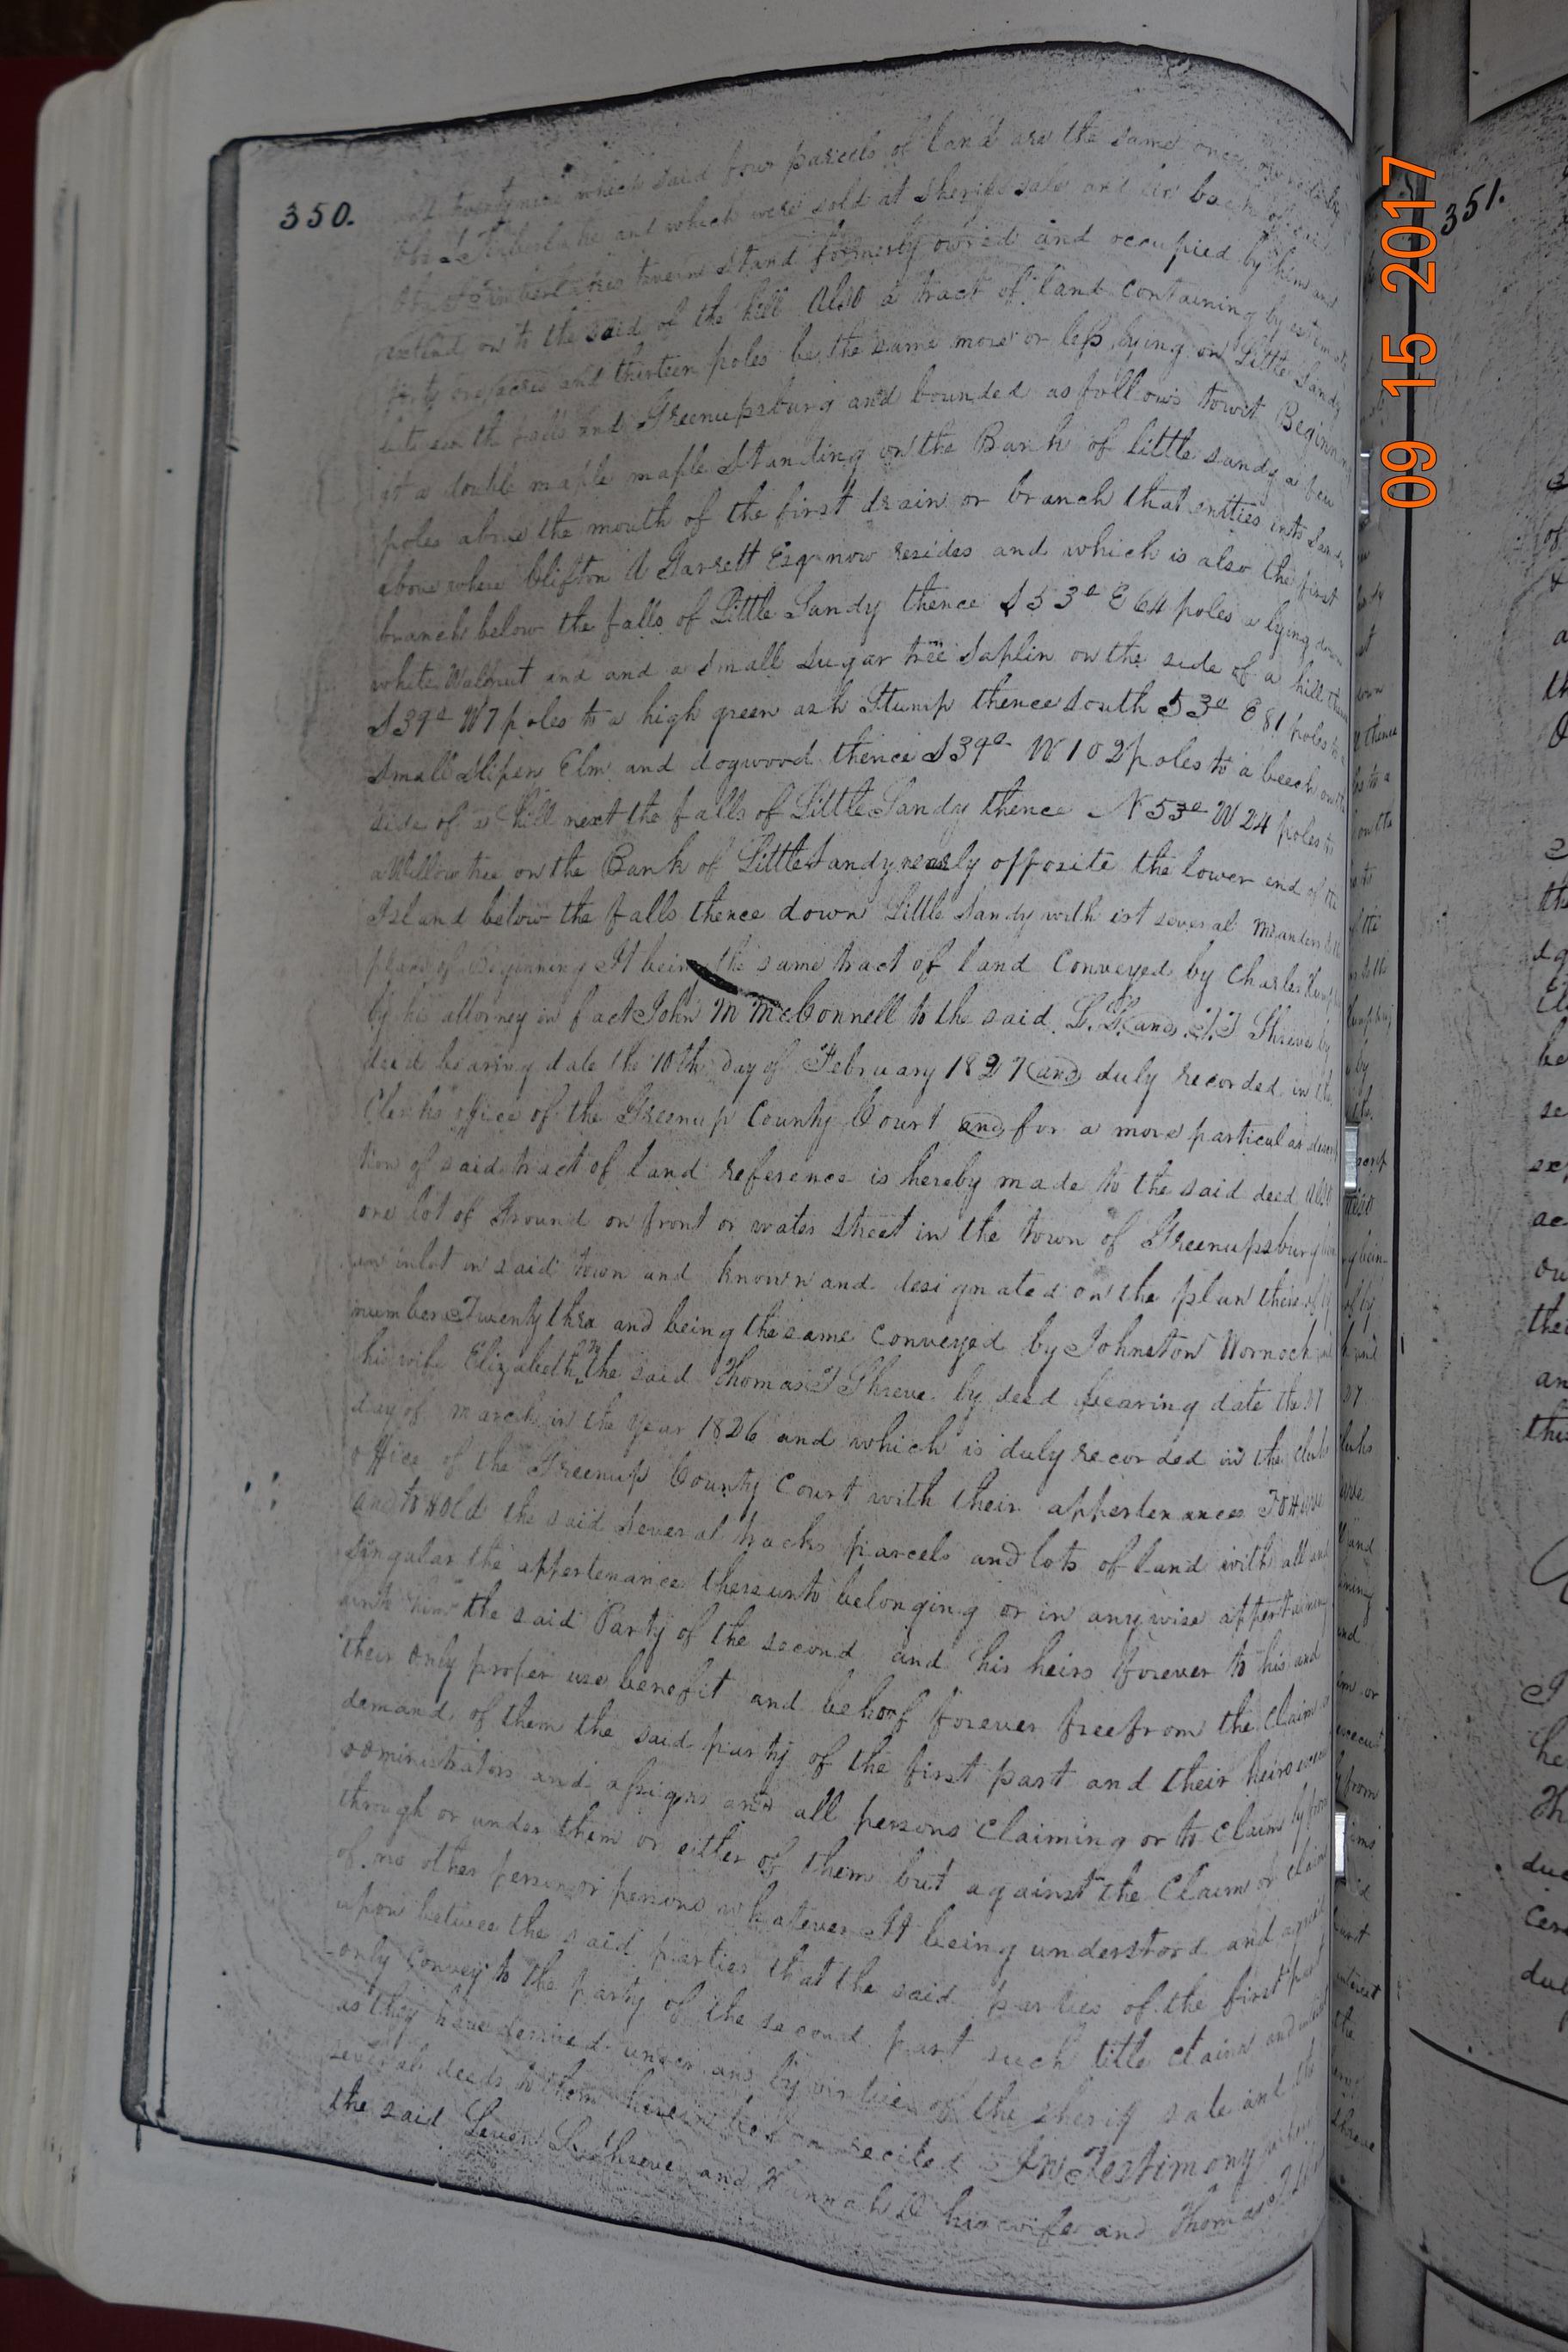 350.
which said four parcels of land are the same once
and which were sold at Sheriffs sale and
tavern stand formerly owned and occupied by him and
extend on to the said of the hill Also a tract of land containing by
acres and thirteen poles be the same more or less lying on Little Sandy
the falls and Greenupsburg and bounded as follows towit Beginning
at a double maple maple Standing on the Bank of little sandy a few
poles above the mouth of the first drain or branch that enties into Sandy
above where Clifton A Garrett Esq now resides and which is also the first
branch below the falls of Little Sandy thence S 53d E 64 poles a lying down
white Walnut and and a small sugar tree Saplin on the side of a hill thence
S39d W7 poles to a high green ash Stump thence South 53d E 81 poles to a
Small Slipery Elm and dogwood thence S39d W 102 poles to a beech on the
side of a hill next the falls of Little Sandy thence N 53d W 24 poles to
a Willow tree on the Bank of Little Sandy nearly opposite the lower end of the
Island below the falls thence down Little Sandy with ist several meanders to the
place of Beginning It being the same tract of land Conveyed by Charles
by his attorney in fact John M McConnell to the said L. L and T. J Shreve by
deed bearing date the 10th day of February 1827 and duly recorded in the
Clerks office of the Greenup County Court and for a more particular descrip
tion of said tract of land reference is hereby made to the said deed Also
one lot of Ground on front or water street in the town of Greenupsburg being
an inlot in said town and known and designated on the plan thereof by
number Twenty three and being the same conveyed by Johnston Wornock and
his wife Elizabeth to the said Thomas J Shreve by deed bearing date the 27
day of March in the year 1826 and which is duly recorded in the Clerks
office of the Greenup County Court with their appertenances To Have
and to Hold the said Several tracks parcels and lots of land with all and
Singular the appertenances thereunto belonging or in anywise appertaining
unto him the said Party of the second and his heirs forever to his and
their only proper use benefit and behoof forever free from the Claim or
demand of them the said party of the first part and their heirs execut
administrators and assigns and all persons Claiming or to Claim by from
through or under them or either of them but against the Claim or claims
of no other person or persons whatever It being understood and agreed
upon between the said parties that the said parties of the first part
only convey to the party of the second part such title claim and interest
as they have derived under and by virtue of the sherif sale and the
several deeds to them herein before recited In Testimony
the said Leven L Shreve and Hannah D his wife and Thomas J
351.
09 15 2017